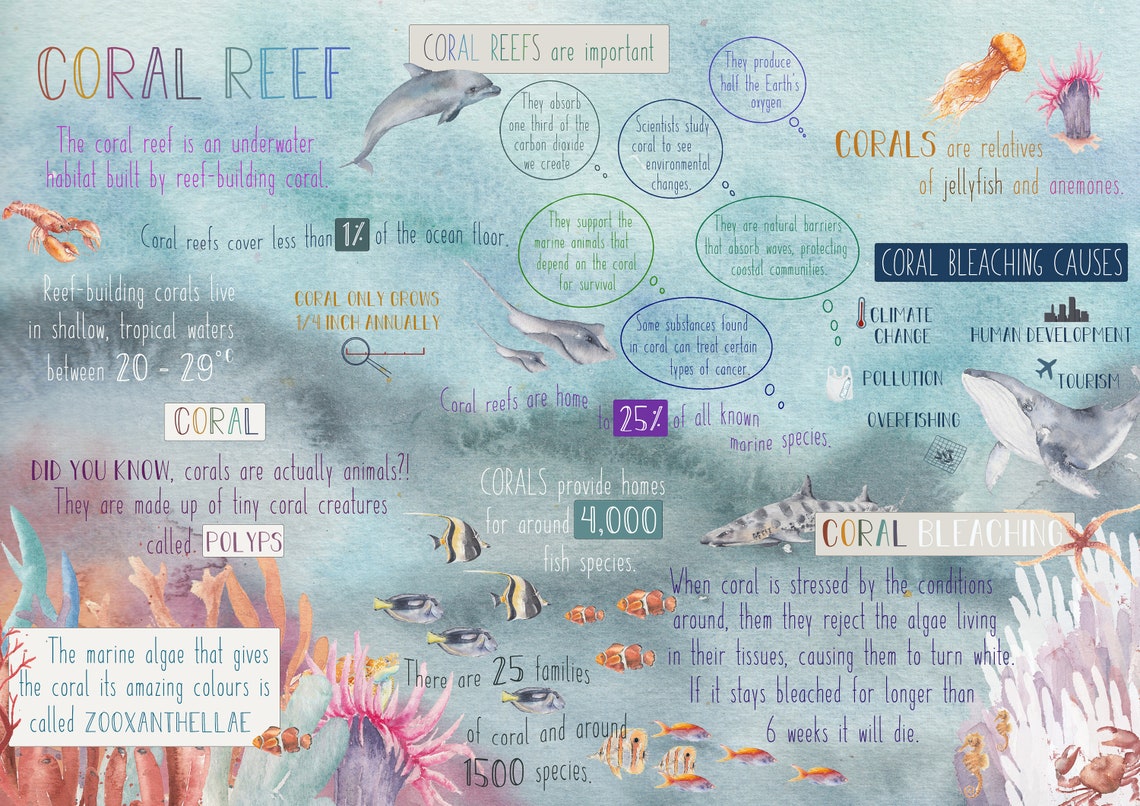 CORAL REEF
The coral reef is an underwater
habitat built by reef-building coral.
CORAL REEFS are important
They absorb
one third of the
carbon dioxide
we create
Scientists study
coral to see
environmental
changes.
They produce
half the Earth's
oxygen
They support the
marine animals that
depend on the coral
for survival
They are natural barriers
that absorb waves, protecting
coastal communities.
Some substances found
in coral can treat certain
types of cancer.
CORALS are relatives
of jellyfish and anemones.
Coral reefs cover less than 1% of the ocean floor.
Reef-building corals live
in shallow, tropical waters
between 20 - 29°C
CORAL ONLY GROWS
1/4 INCH ANNUALLY
Coral reefs are home
to 25% of all known
marine species.
CORAL BLEACHING CAUSES
CLIMATE
CHANGE
HUMAN DEVELOPMENT
POLLUTION
TOURISM
OVERFISHING
CORAL
DID YOU KNOW, corals are actually animals?!
They are made up of tiny coral creatures
called. POLYPS
CORALS provide homes
for around 4,000
fish species.
CORAL BLEACHING
When coral is stressed by the conditions
around, them they reject the algae living
in their tissues, causing them to turn white.
If it stays bleached for longer than
6 weeks it will die.
The marine algae that gives
the coral its amazing colours is
called ZOOXANTHELLAE
There are 25 families
of coral and around
1500 species.